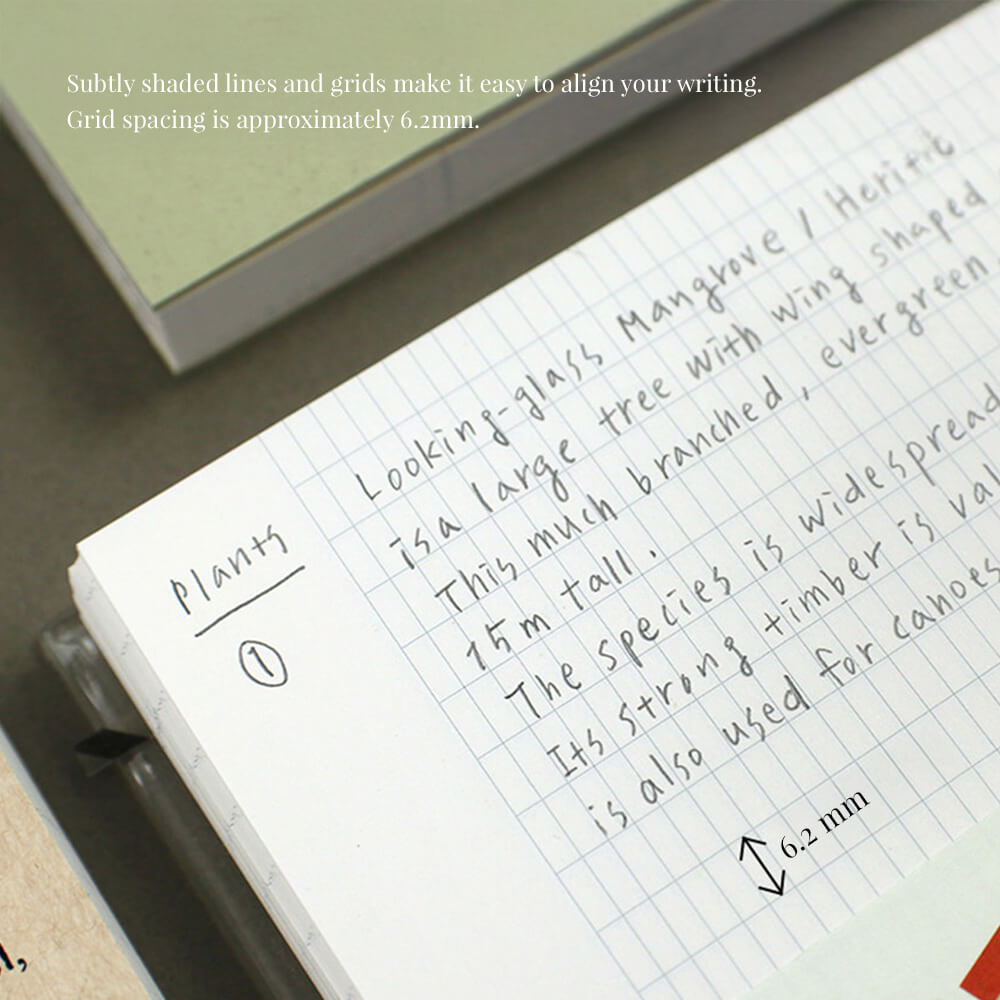 Subtly shaded lines and grids make it easy to align your writing.
Grid spacing is approximately 6.2mm.
Plants
1
Looking-glass Mangrove / Heritie
is a large tree with wing shaped
This much branched, evergreen
15m tall.
The species is widespread
Its strong timber is val
is also used for canoes
6.2 mm